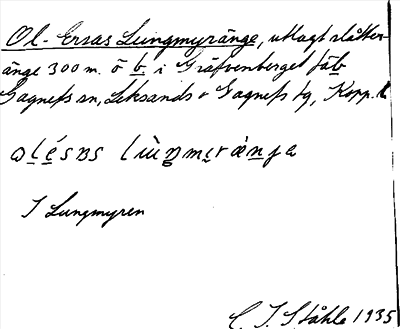 Ol-Ersas Lungmyränge, utlagt slåtter-
änge 300 m. ö b. i Gräfvenberget fäb
Gagnefs sn, Leksands o Gagnefs tg, Kopp. l
I Lungmyren
C. J. Ståhle 1935